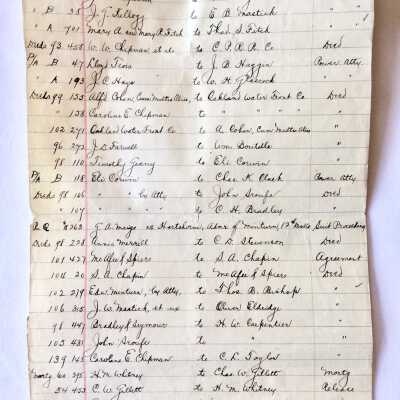 " B 35 J. G. Kellogg to E. B. Mastick "
" A 701 Mary A. and Mary R. Fitch to Thos. S. Fitch "
Deeds 93 458 W. W. Chipman et al to C. P. R. R. Co Deed
P/A B 47 Lloyd Tevis to J. B. Haggin Power Atty
" A 193 J. C. Hays to W. H. Glascock "
Deeds 99 153 Alfd Cohen, to Oakland Water Front Co Deed
" 158 Caroline E. Chipman to " "
102 271 Oakland Water Front Co to A. Cohen, "
96 272 J. D. Farwell to Wm. Doolittle "
98 110 Timothy Geary to Eli Corwin "
P/A B 118 Eli Corwin to Chas. K. Clark Power Atty
Deeds 98 106 " " by Atty to John Sroufe Deed
" 107 " " " to C. H. Bradley "
8 263 G. A. Meigs vs Hartshorn, Admr of Minturn, 12th Suit
Deeds 98 228 Annie Merrill to C. D. Stevenson Deed
101 427 McAfee & Spiers to S. A. Chapin Agreement
104 20 S. A. Chapin to McAfee & Spiers Deed
102 219 Edw. Minturn, by Atty, to Thos. B. Bishop "
106 315 J. W. Mastick, et ux to Oliver Eldridge "
98 447 Bradley & Seymour to H. W. Carpentier "
105 431 John Sroufe to " "
139 145 Caroline E. Chipman to C. L. Taylor "
Mortg 60 295 H. M. Whitney to Chas. W. Gillett Mortg
54 452 C. W. Gillett to H. M. Whitney Release